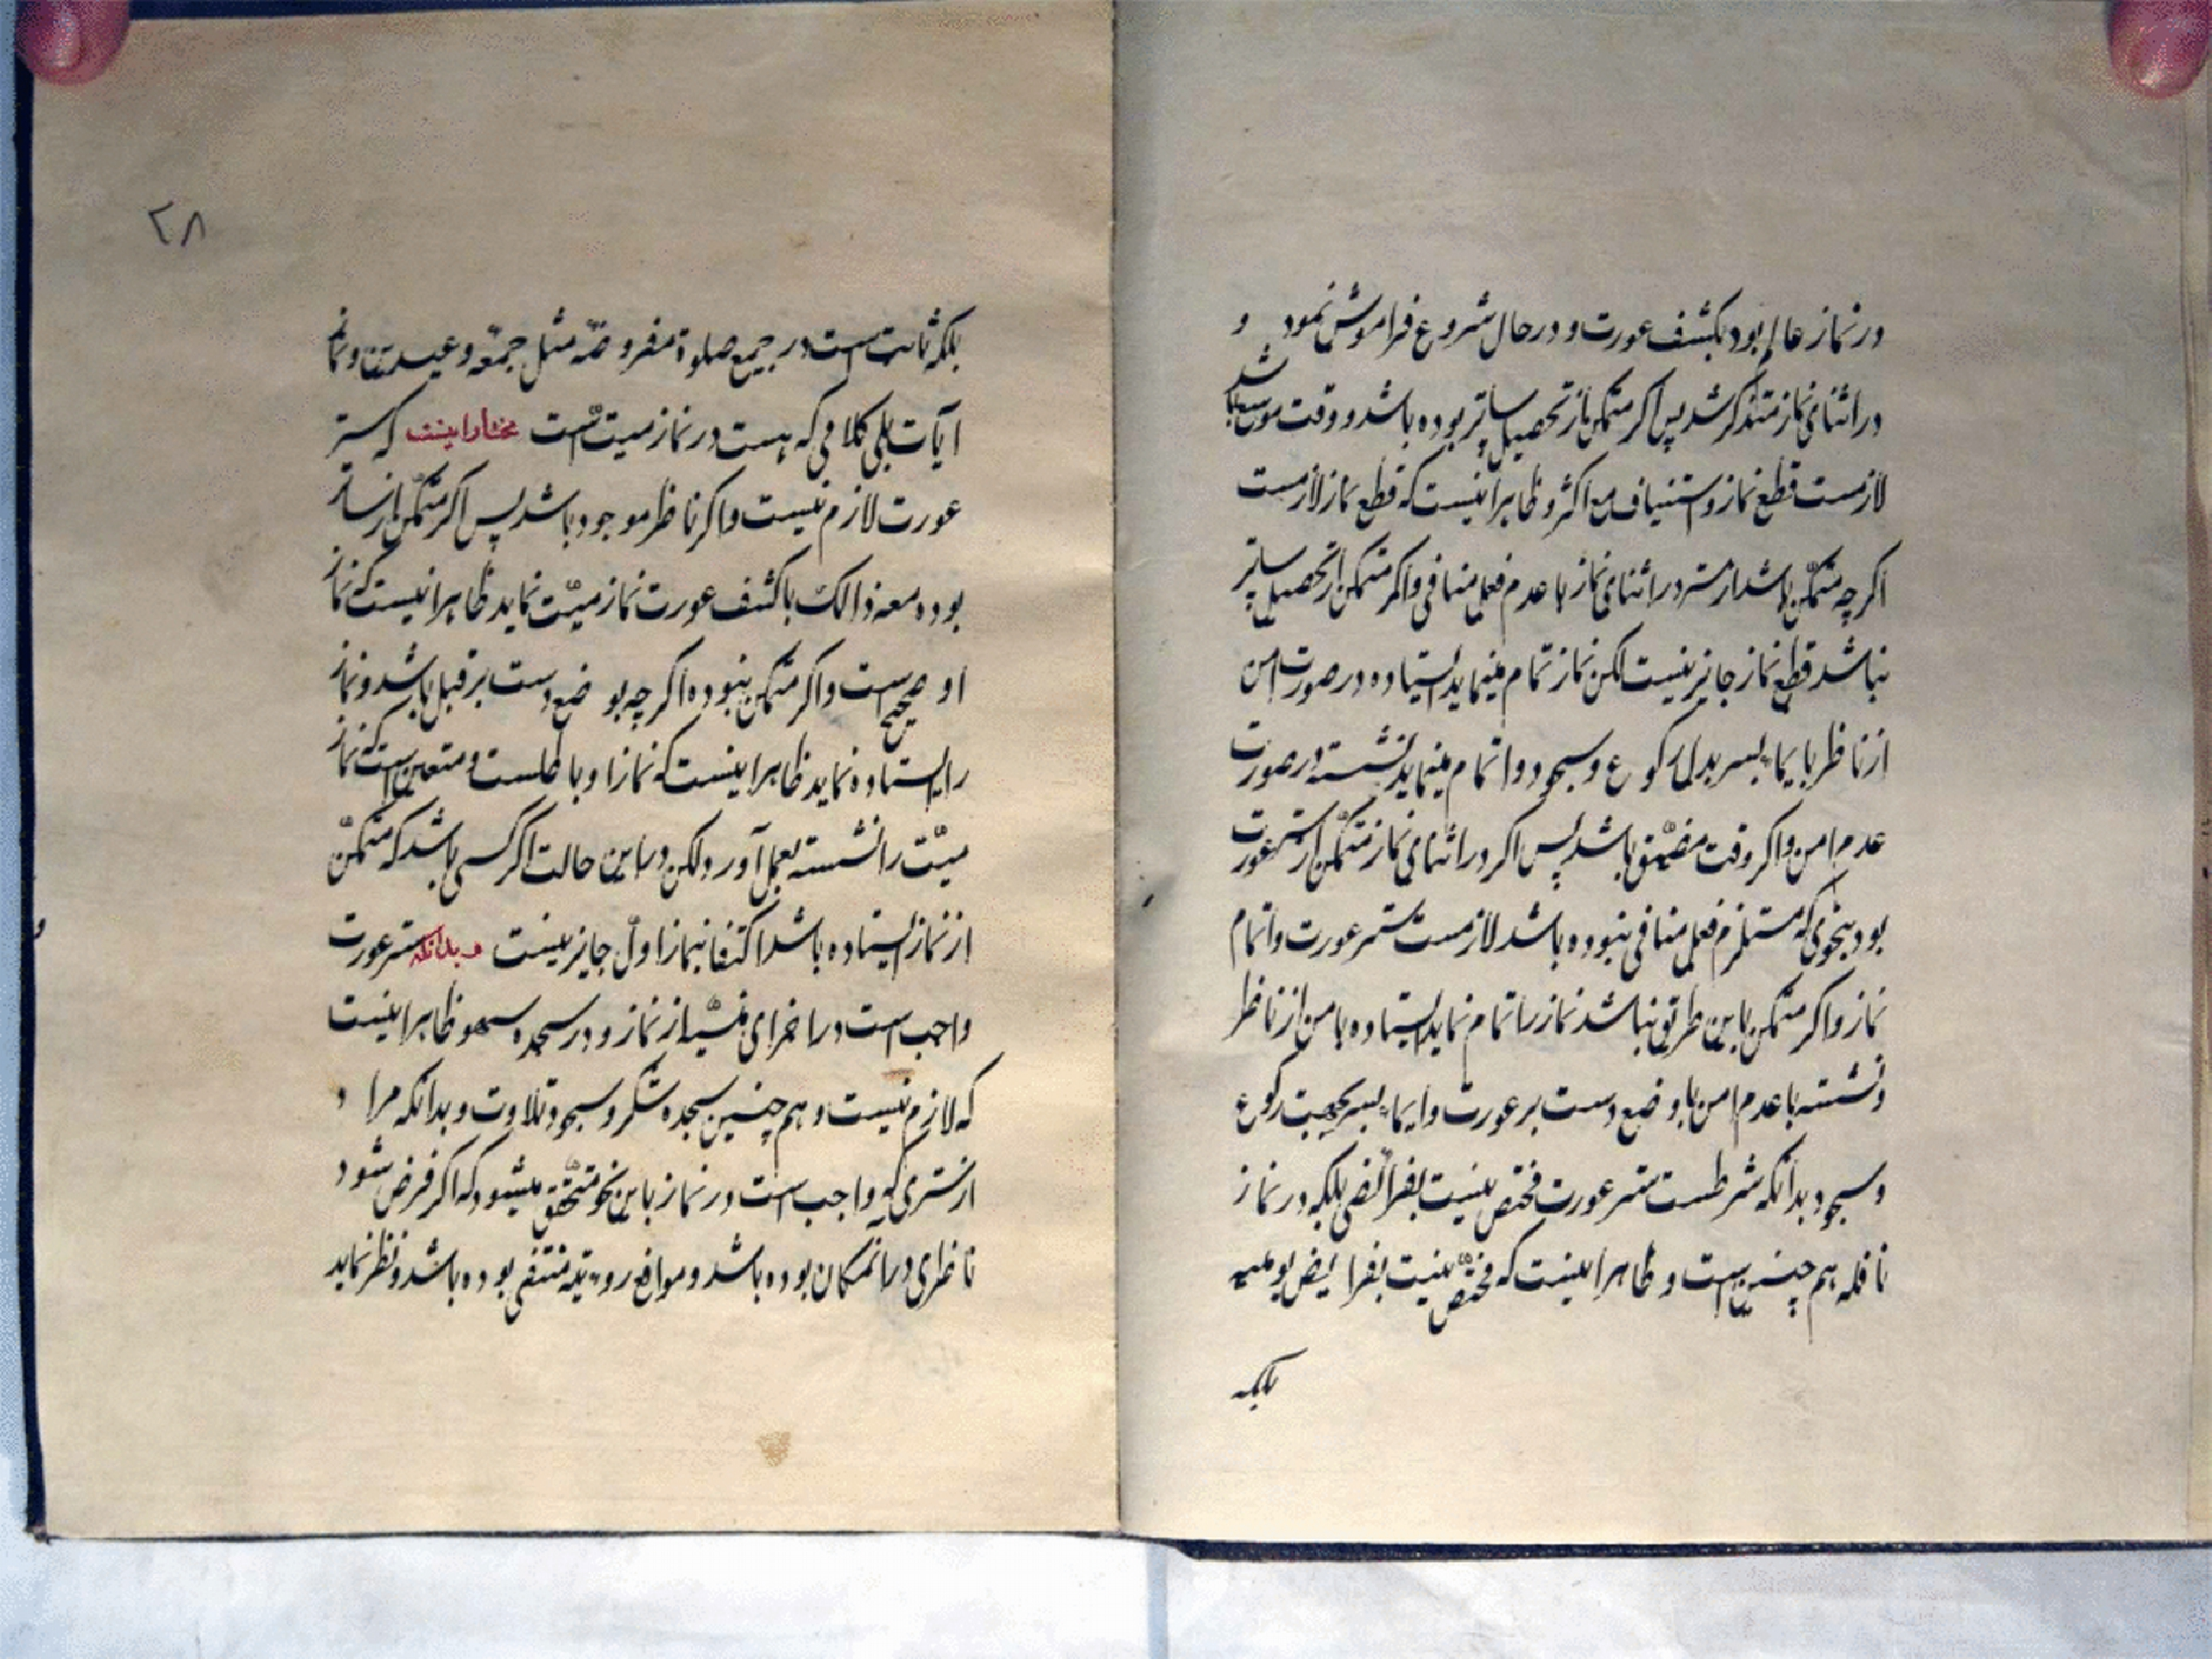 در نماز عالم بود بکشف عورت و در حال شروع فراموش نمود و
در اثنای نماز متذکر شد پس اگر متمکن از تحصیل ساتر بوده باشد و وقت موسع باشد
لازمست قطع نماز و استیناف مع اکثر و ظاهر اینست که قطع نماز لازمست
اکرچه متمکّن باشد از ستر در اثنای نماز با عدم فعل منافی و اکر متمکن از تحصیل ساتر
نباشد قطع نماز جایز نیست لکن نماز تمام مینماید ایستاده در صورت امن
از ناظر بایماء بسر بدل رکوع و سجود و اتمام مینماید نشسته در صورت
عدم امن و اکر وقت مضیّق باشد پس اکر در اثنای نماز متمکّن از ستر عورت
بود بنحوی که مستلزم فعل منافی نبوده باشد لازمست ستر عورت و اتمام
نماز و اکر متمکن باین طریق نباشد نماز را تمام نماید ایستاده با من از ناظر
و نشسته با عدم امن با وضع دست بر عورت و ایماء بسر بجهت رکوع
و سجود بدانکه شرطست ستر عورت مختص نیست بفرائض بلکه در نماز
نافله هم چنین است و ظاهر اینست که مختصّ نیست بفرایض یومیه
بلکه
۲۸
بلکه ثابت است در جمیع صلوة مفروضه مثل جمعه و عیدین و نماز
آیات بلی کلامی که هست در نماز میّت است مختار اینست که ستر
عورت لازم نیست و اکر ناظر موجود باشد پس اکر متمکّن از ساتر
بوده معه ذالک با کشف عورت نماز میّت نماید ظاهر اینست که نماز
او صحیح است و اکر متمکن نبوده اکرچه بو ضع دست بر قبل باشد و نماز
را ایستاده نماید ظاهر اینست که نماز او باطلست و متعین است که نماز
میّت را نشسته بعمل آورد و لکن در این حالت اکر کسی باشد که متمکّن
از نماز ایستاده باشد اکتفا بنماز اول جایز نیست و بدانکه ستر عورت
واجب است در اجزای منسیّه از نماز و در سجده سهو ظاهر اینست
که لازم نیست و هم چنین سجده شکر و سجود تلاوت و بدانکه مراد
از ستری که واجب است در نماز باین نحو متحقّق میشود که اکر فرض شود
ناظری در آنمکان بوده باشد و موانع رویة منتفی بوده باشد و نظر نماید